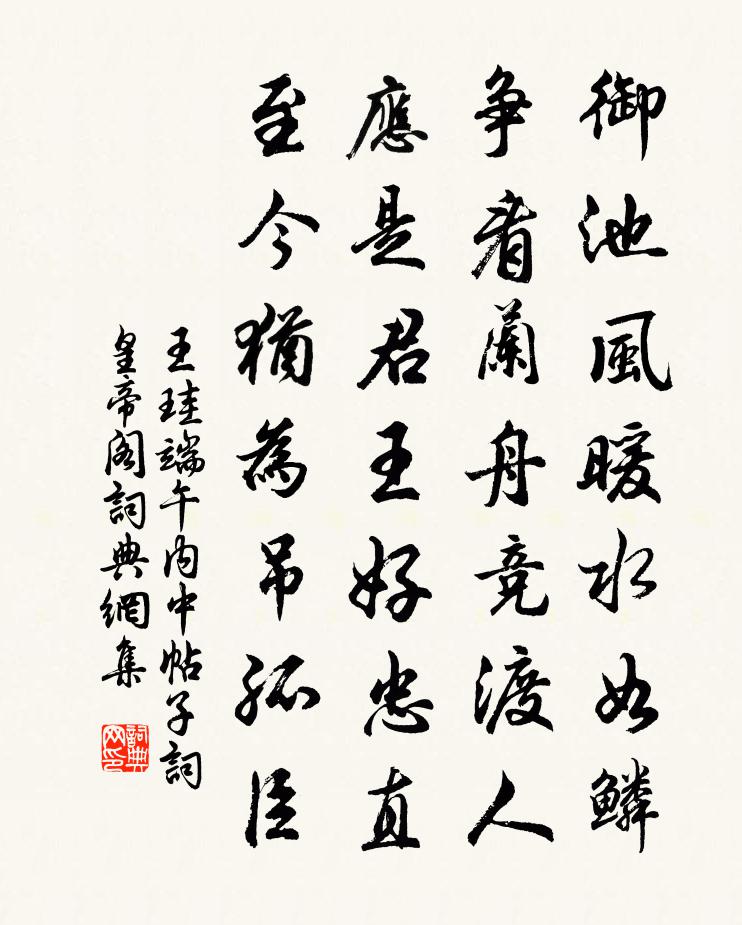 御池風暖水如鱗
争看蘭舟競渡人
應是君王好忠直
至今猶為吊孤臣
王珪端午内中帖子詞
皇帝閣詞典網集
詞典网印